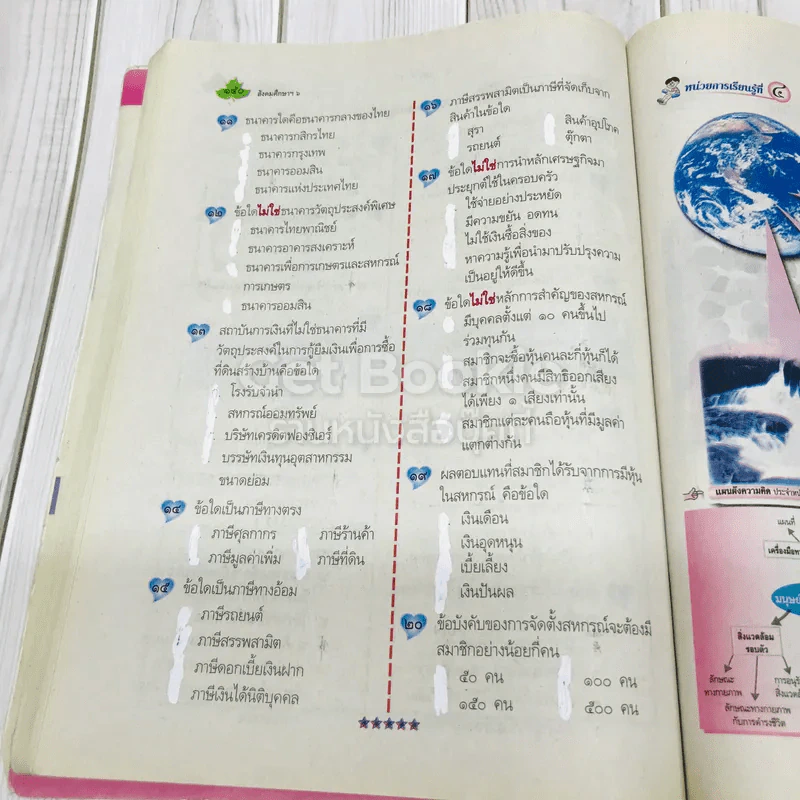 ๑๔๐ สังคมศึกษาฯ ๖
๑๑ ธนาคารใดคือธนาคารกลางของไทย
ธนาคารกสิกรไทย
ธนาคารกรุงเทพ
ธนาคารออมสิน
ธนาคารแห่งประเทศไทย
๑๒ ข้อใดไม่ใช่ธนาคารวัตถุประสงค์พิเศษ
ธนาคารไทยพาณิชย์
ธนาคารอาคารสงเคราะห์
ธนาคารเพื่อการเกษตรและสหกรณ์
การเกษตร
ธนาคารออมสิน
๑๓ สถาบันการเงินที่ไม่ใช่ธนาคารที่มี
วัตถุประสงค์ในการกู้ยืมเงินเพื่อการซื้อ
ที่ดินสร้างบ้านคือข้อใด
โรงรับจำนำ
สหกรณ์ออมทรัพย์
บริษัทเครดิตฟองซิเอร์
บรรษัทเงินทุนอุตสาหกรรม
ขนาดย่อม
๑๔ ข้อใดเป็นภาษีทางตรง
ภาษีศุลกากร ภาษีร้านค้า
ภาษีมูลค่าเพิ่ม ภาษีที่ดิน
๑๕ ข้อใดเป็นภาษีทางอ้อม
ภาษีรถยนต์
ภาษีสรรพสามิต
ภาษีดอกเบี้ยเงินฝาก
ภาษีเงินได้นิติบุคคล
๑๖ ภาษีสรรพสามิตเป็นภาษีที่จัดเก็บจาก
สินค้าในข้อใด
สุรา สินค้าอุปโภค
รถยนต์ ตุ๊กตา
๑๗ ข้อใดไม่ใช่การนำหลักเศรษฐกิจมา
ประยุกต์ใช้ในครอบครัว
ใช้จ่ายอย่างประหยัด
มีความขยัน อดทน
ไม่ใช้เงินซื้อสิ่งของ
หาความรู้เพื่อนำมาปรับปรุงความ
เป็นอยู่ให้ดีขึ้น
๑๘ ข้อใดไม่ใช่หลักการสำคัญของสหกรณ์
มีบุคคลตั้งแต่ ๑๐ คนขึ้นไป
ร่วมทุนกัน
สมาชิกจะซื้อหุ้นคนละกี่หุ้นก็ได้
สมาชิกหนึ่งคนมีสิทธิออกเสียง
ได้เพียง ๑ เสียงเท่านั้น
สมาชิกแต่ละคนถือหุ้นที่มีมูลค่า
แตกต่างกัน
๑๙ ผลตอบแทนที่สมาชิกได้รับจากการมีหุ้น
ในสหกรณ์ คือข้อใด
เงินเดือน
เงินอุดหนุน
เบี้ยเลี้ยง
เงินปันผล
๒๐ ข้อบังคับของการจัดตั้งสหกรณ์จะต้องมี
สมาชิกอย่างน้อยกี่คน
๕๐ คน ๑๐๐ คน
๑๕๐ คน ๕๐๐ คน
หน่วยการเรียนรู้ที่ ๔
แผนผังความคิด
แผนที่
สิ่งแวดล้อม
รอบตัว
ลักษณะ
ทางกายภาพ
ลักษณะทางกายภาพ
กับการดำรงชีวิต